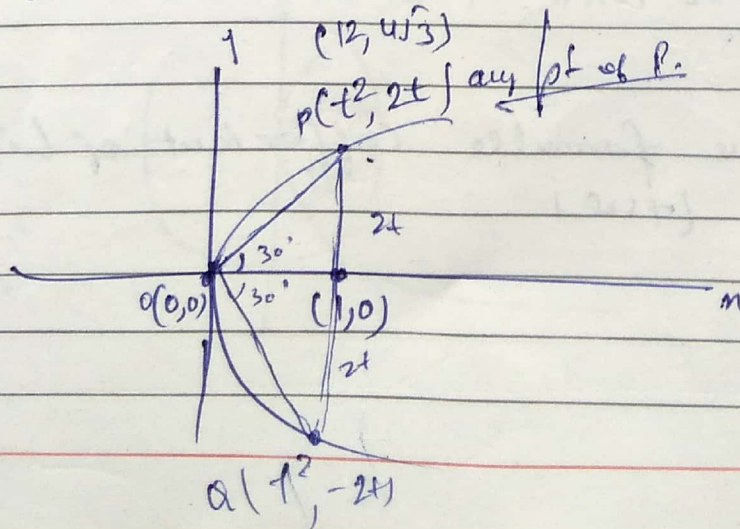 y
(12, 4√3)
P(t², 2t) any pt of P.
2t
30°
30°
O(0,0)
(1,0)
x
2t
Q(t², -2t)